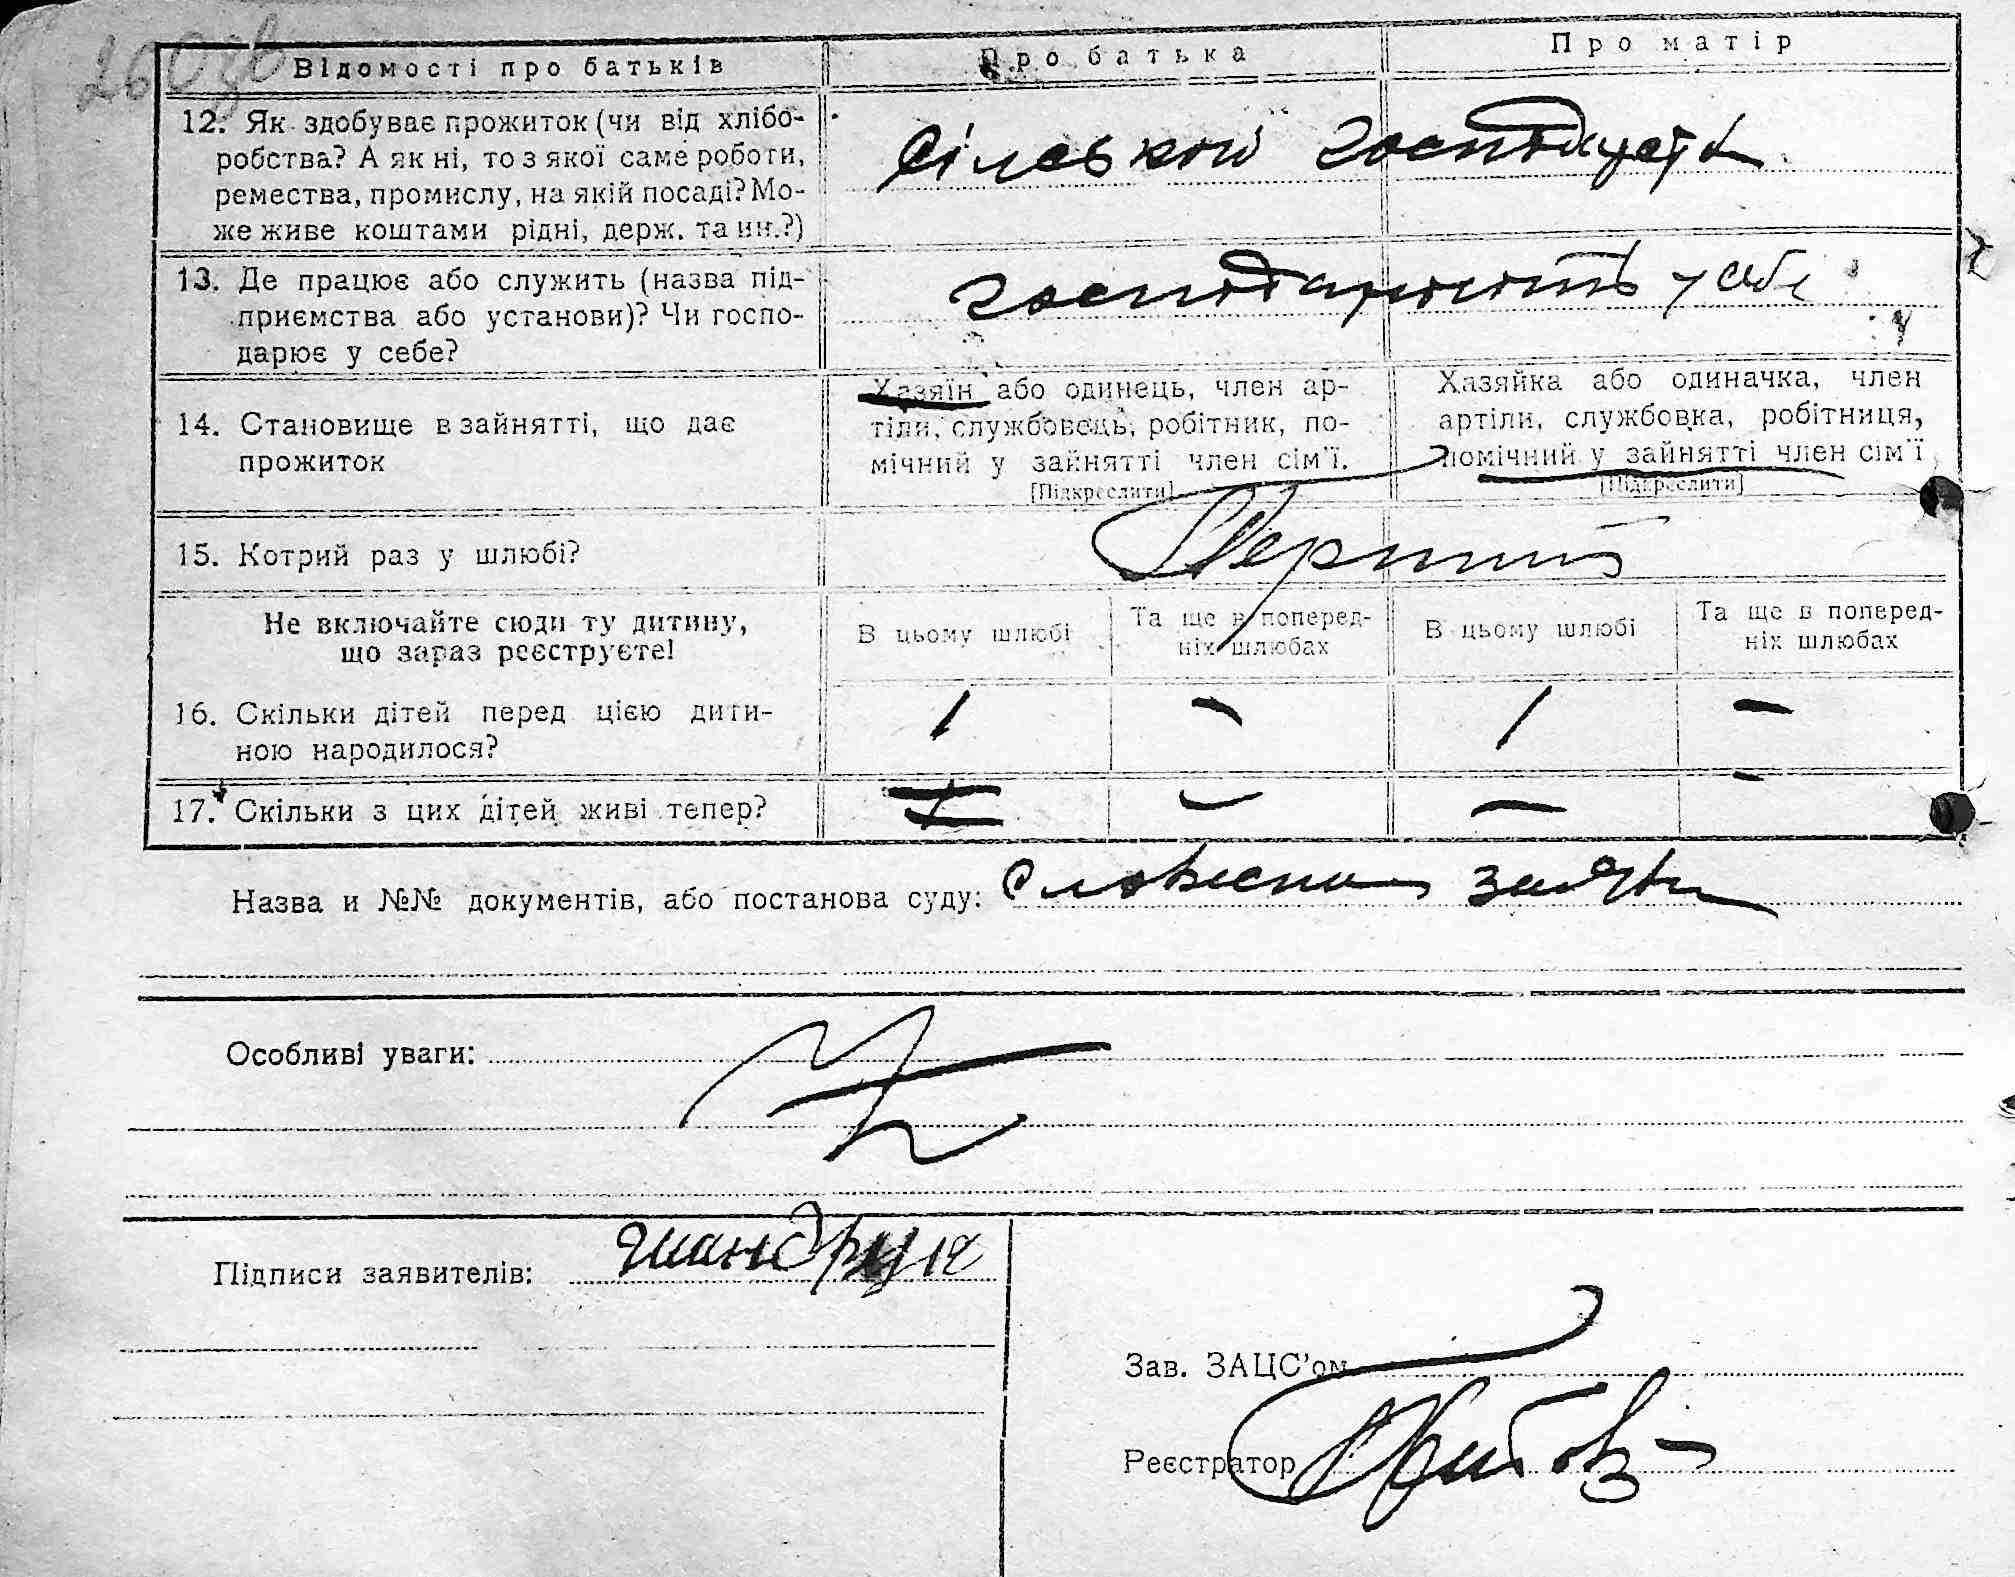 260зв
Відомості про батьків
Про батька
Про матір
12. Як здобуває прожиток (чи від хлібо-
робства? А як ні, то з якої саме роботи,
ремества, промислу, на якій посаді? Мо-
же живе коштами рідні, держ. та ин.?)
13. Де працює або служить (назва під-
приємства або установи)? Чи госпо-
дарює у себе?
господарюють у себе
14. Становище в зайнятті, що дає
прожиток
Хазяїн або одинець, член ар-
тіли, службовець, робітник, по-
мічний у зайнятті член сім'ї.
[Підкреслити]
Хазяйка або одиначка, член
артіли, службовка, робітниця,
помічний у зайнятті член сім'ї
[Підкреслити]
15. Котрий раз у шлюбі?
Перший
Не включайте сюди ту дитину,
що зараз реєструєте!
В цьому шлюбі
Та ще в поперед-
ніх шлюбах
В цьому шлюбі
Та ще в поперед-
ніх шлюбах
16. Скільки дітей перед цією дити-
ною народилося?
1 – 1 –
17. Скільки з цих дітей живі тепер?
– – –
Назва и №№ документів, або постанова суду: Словесна заява
Особливі уваги:
Підписи заявителів:
Зав. ЗАЦС'ом
Реєстратор